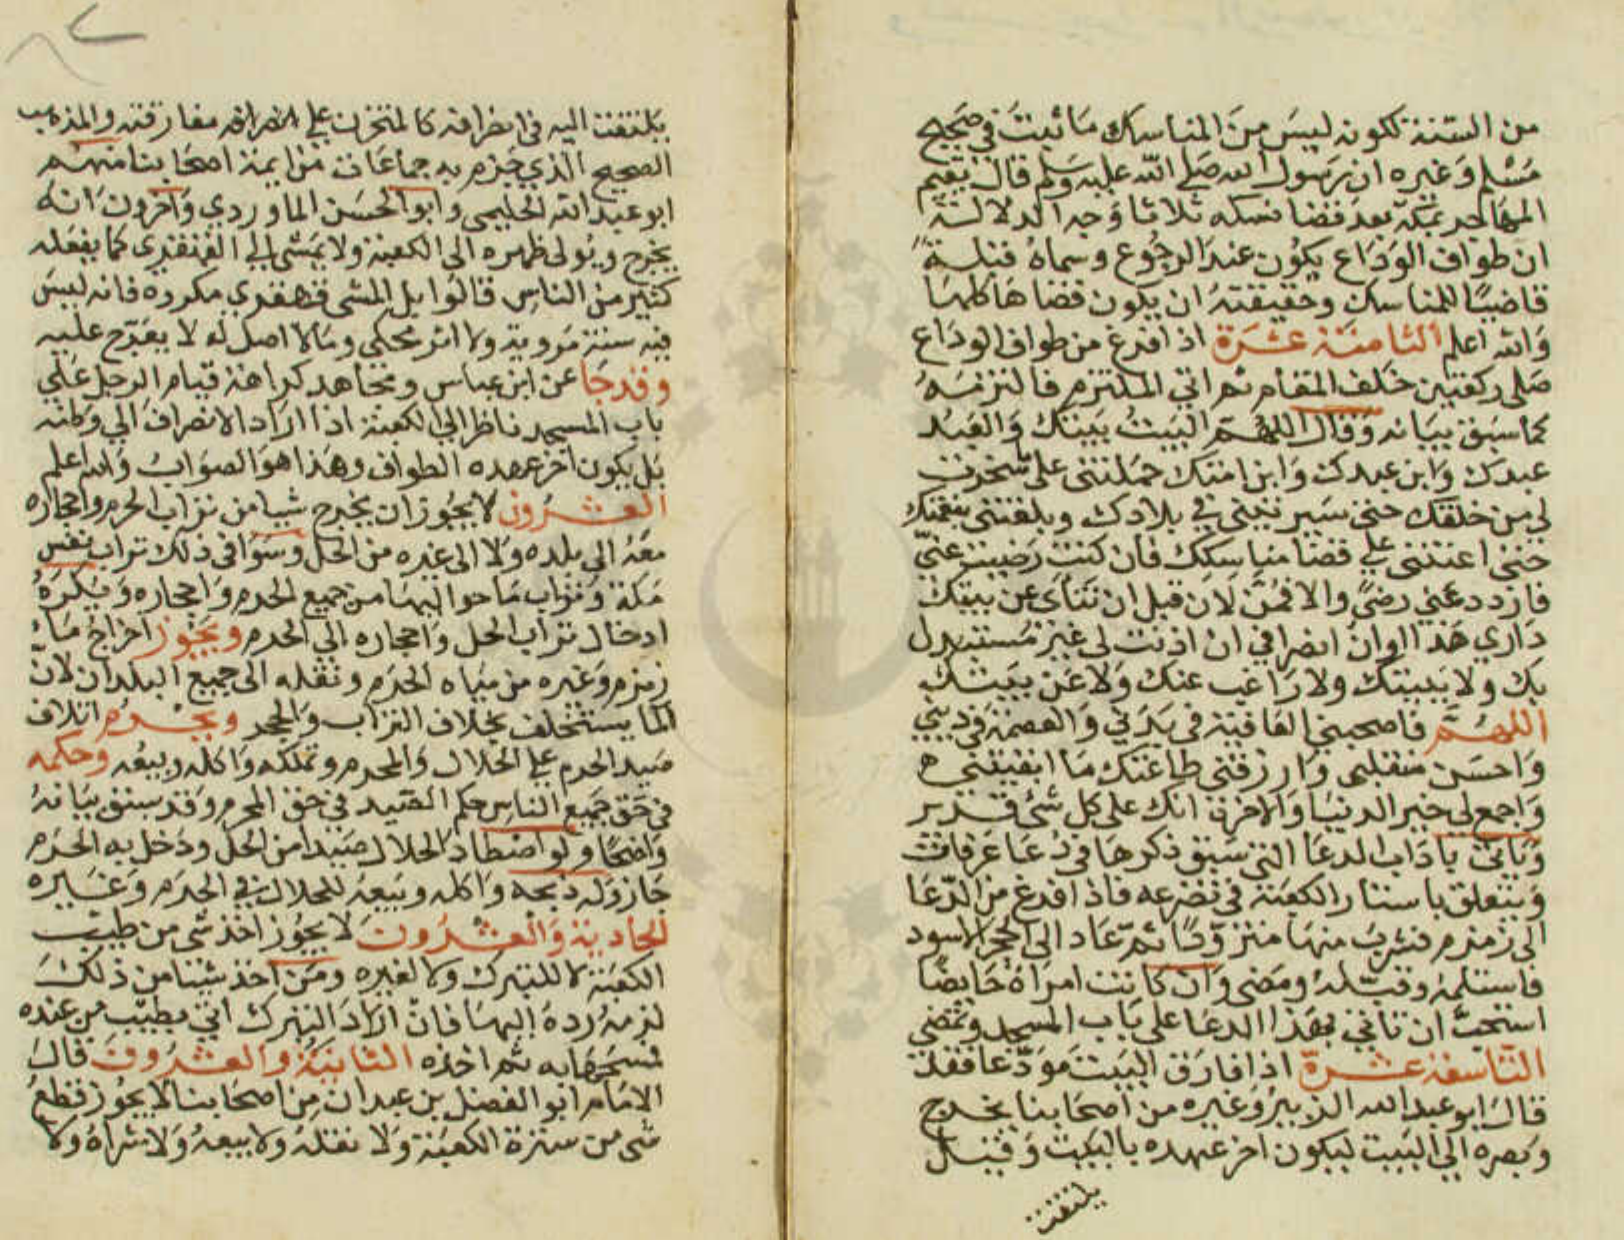 من السنة لكونه ليس من المناسك ما ثبت في صحيح
مسلم وغيره ان رسول الله صلى الله عليه وسلم قال يقيم
المهاجر بمكة بعد قضا نسكه ثلاثا وجه الدلالة
ان طواف الوداع يكون عند الرجوع وسماه قبله
قاضيا للمناسك وحقيقته ان يكون قضاها كلها
والله اعلم الثامنة عشرة اذا فرغ من طواف الوداع
صلى ركعتين خلف المقام ثم اتي الملتزم فالتزمه
كما سبق بيانه وقال اللهم البيت بيتك والعبد
عبدك وابن عبدك وابن امتك حملتني على ما سخرت
لي من خلقك حتى سيرتني في بلادك وبلغتني بنعمتك
حتى اعنتني علي قضا مناسكك فان كنت رضيت عني
فازدد عني رضى والا فمن الان قبل ان تنأى عن بيتك
داري هذا اوان انصرافي ان اذنت لي غير مستبدل
بك ولا ببيتك ولا راغب عنك ولا عن بيتك
اللهم فاصحبني العافية في بدني والعصمة في ديني
واحسن منقلبي وارزقني طاعتك ما ابقيتني
واجمع لي خير الدنيا والاخرة انك على كل شئ قدير
وياتي باداب الدعا التي سبق ذكرها في دعا عرفات
ويتعلق باستار الكعبة في تضرعه فاذا فرغ من الدعا
اتى زمزم فشرب منها متزودا ثم عاد الى الحجر الاسود
فاستلمه وقبله ومضى وان كانت امراة حايضا
استحب ان تاتي بهذا الدعا على باب المسجد وتمضي
التاسعة عشرة اذا فارق البيت مودعا فقد
قال ابو عبد الله الزبيري وغيره من اصحابنا يخرج
وبصره الي البيت ليكون اخر عهده بالبيت وقيل
يلتفت
يلتفت اليه في انصرافه كالمتحزن علي مفارقته والمذهب
الصحيح الذي جزم به جماعات من ايمة اصحابنا منهم
ابو عبد الله الحليمي وابو الحسن الماوردي واخرون انه
يخرج ويولي ظهره الي الكعبة ولا يمشي الي القهقري كما يفعله
كثير من الناس قالوا بل المشى قهقري مكروه فانه ليس
فيه سنة مروية ولا اثر محكي وما لا اصل له لا يعرج عليه
وقد جا عن ابن عباس ومجاهد كراهة قيام الرجل علي
باب المسجد ناظرا الي الكعبة اذا اراد الانصراف الي وطنه
بل يكون اخر عهده الطواف وهذا هو الصواب والله اعلم
العشرون لا يجوز ان يخرج شيا من تراب الحرم واحجاره
معه الى بلده ولا الى غيره من الحل وسوا في ذلك تراب نفس
مكة وتراب ما حواليها من جميع الحرم واحجاره ويكره
ادخال تراب الحل واحجاره الى الحرم ويجوز اخراج ماء
زمزم وغيره من مياه الحرم ونقله الى جميع البلدان لان
الما يستخلف بخلاف التراب والحجر ويحرم اتلاف
صيد الحرم علي الحلال والمحرم وتملكه واكله وبيعه وحكمه
في حق جميع الناس حكم الصيد في حق المحرم وقد سبق بيانه
واضحا ولو اصطاد الحلال صيدا من الحل ودخل به الحرم
جاز له ذبحه واكله وبيعه للحلال في الحرم وغيره
الحادية والعشرون لا يجوز اخذ شى من طيب
الكعبة لا للتبرك ولا لغيره ومن اخذ شيئا من ذلك
لزمه رده اليها فان اراد التبرك اتي بطيب من عنده
فمسحها به ثم اخذه الثانية والعشرون قال
الامام ابو الفضل بن عبدان من اصحابنا لا يجوز قطع
شى من سترة الكعبة ولا نقله ولا بيعه ولا شراه ولا